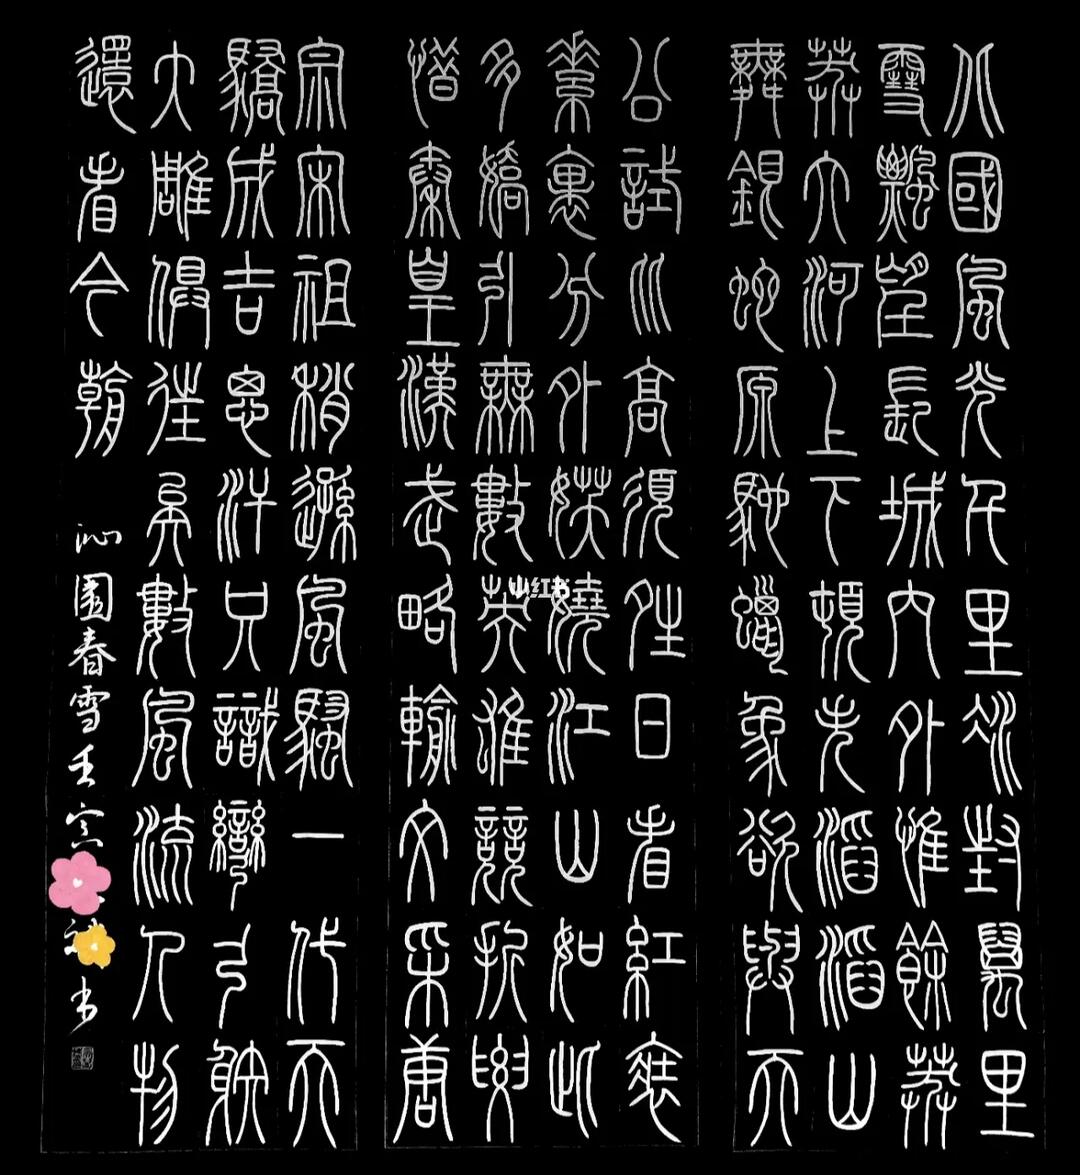 北國風光千里冰封萬里
雪飄望長城内外惟餘莽
莽大河上下頓失滔滔山
舞銀蛇原馳蠟象欲與天
公試比高須晴日看紅裝
素裹分外妖嬈江山如此
多嬌引無數英雄競折腰
惜秦皇漢武略輸文采唐
宗宋祖稍遜風騷一代天
驕成吉思汗只識彎弓射
大雕俱往矣數風流人物
還看今朝
沁園春雪壬寅书
小红书